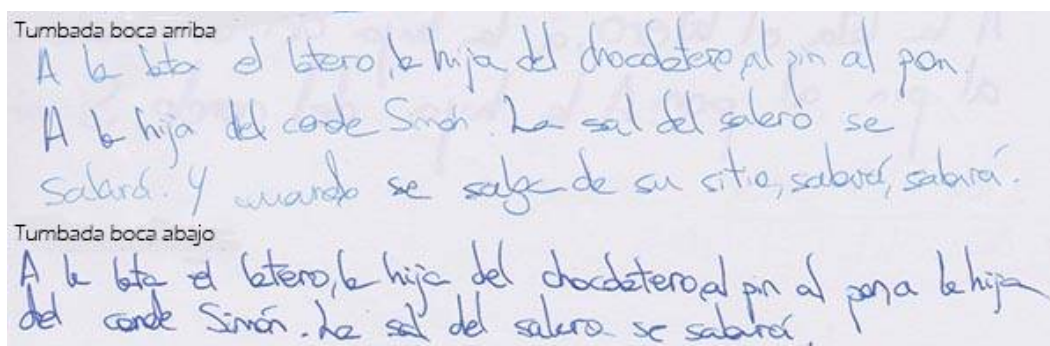 Tumbada boca arriba
A la lata el latero, la hija del chocolatero, al pin al pon,
A la hija del conde Simón. La sal del salero se
salará. Y cuando se salga de su sitio, salará, salará.
Tumbada boca abajo
A la lata el latero, la hija del chocolatero, al pin al pon a la hija
del conde Simón. La sal del salero se salará.